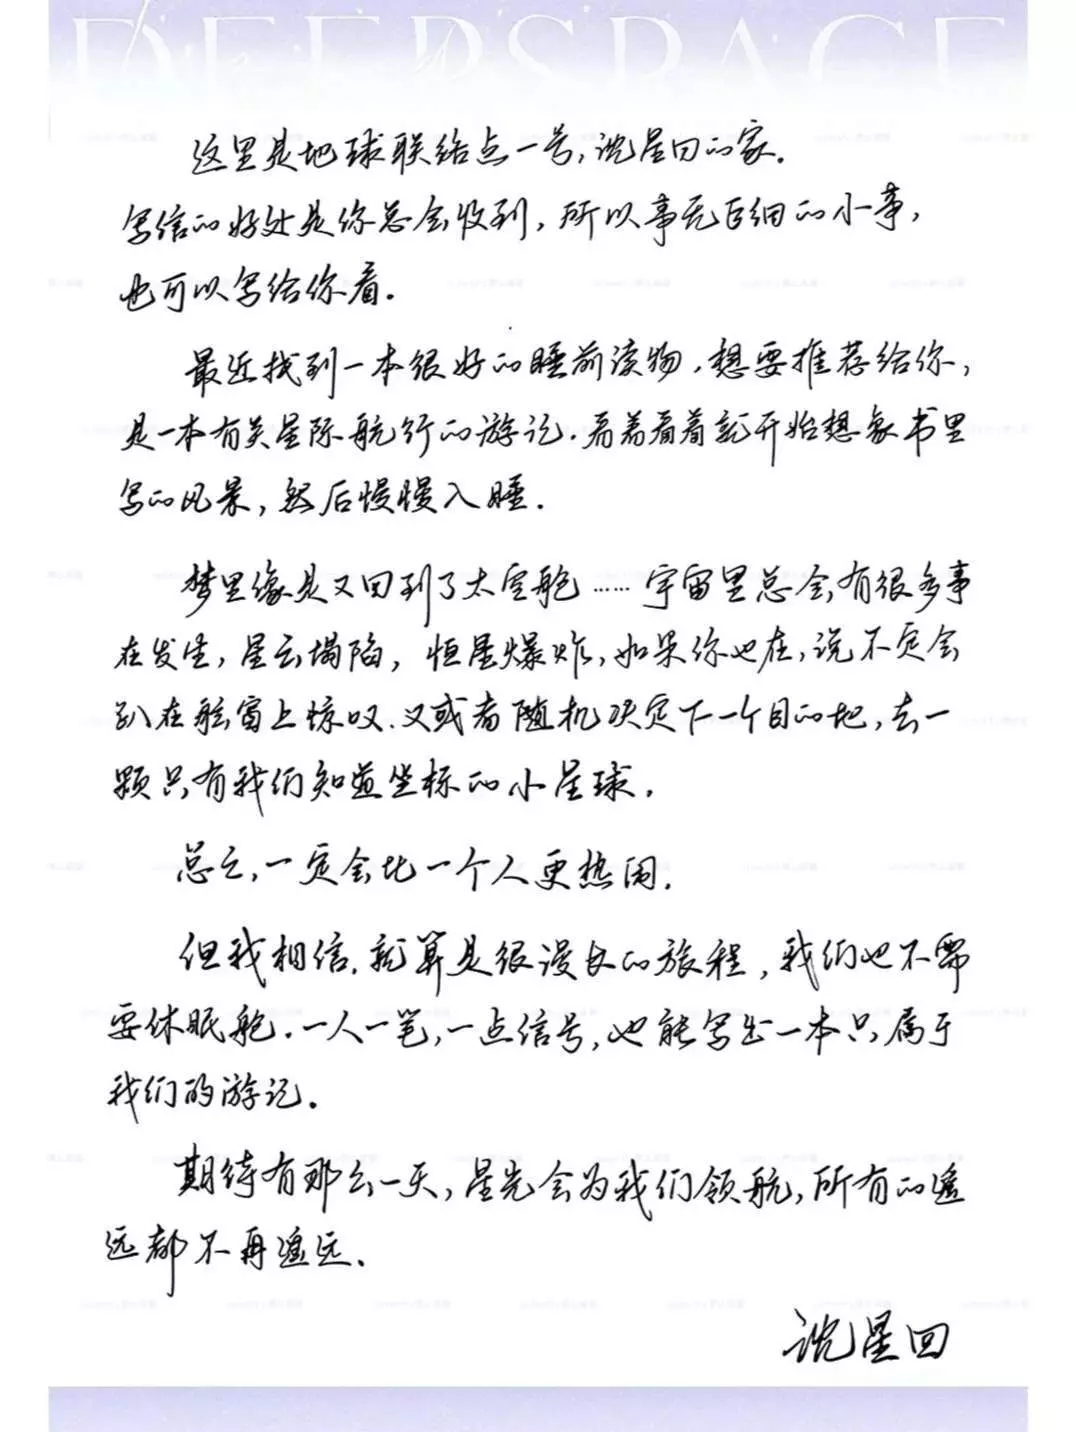 DEEPSPACE
这里是地球联络点一号,沈星回的家.
写信的好处是你总会收到,所以事无巨细的小事,
也可以写给你看.
最近找到一本很好的睡前读物,想要推荐给你,
是一本有关星际航行的游记.看着看着就开始想象书里
写的风景,然后慢慢入睡.
梦里像是又回到了太空舱……宇宙里总会有很多事
在发生,星云塌陷,恒星爆炸,如果你也在,说不定会
趴在舷窗上惊叹.又或者随机决定下一个目的地,去一
颗只有我们知道坐标的小星球.
总之,一定会比一个人更热闹.
但我相信,就算是很漫长的旅程,我们也不需
要休眠舱.一人一笔,一点信号,也能写出一本只属于
我们的游记.
期待有那么一天,星光会为我们领航,所有的遥
远都不再遥远.
沈星回